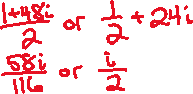 (1+48i)/2 or 1/2 + 24i
58i/116 or i/2